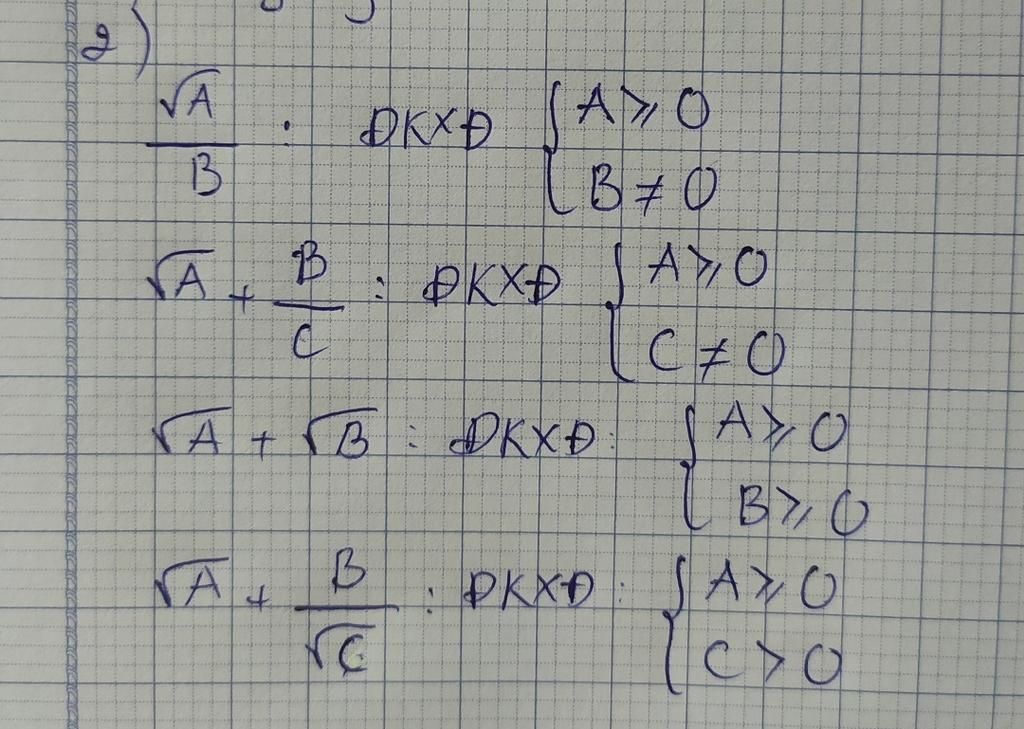 2)
√A / B : ĐKXĐ { A ⩾ 0
B ≠ 0
√A + B / C : ĐKXĐ { A ⩾ 0
C ≠ 0
√A + √B : ĐKXĐ : { A ⩾ 0
B ⩾ 0
√A + B / √C : ĐKXĐ : { A ⩾ 0
C > 0